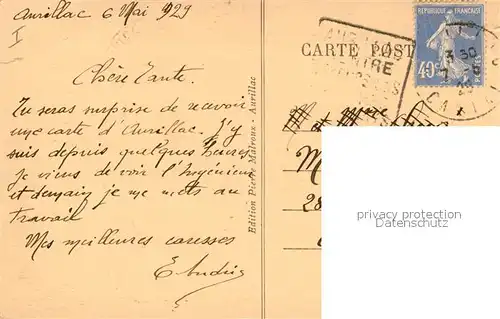 Aurillac 6 Mai 1929
I
Chère Tante.
Tu seras surprise de recevoir
une carte d'Aurillac. J'y
suis depuis quelques heures,
je viens de voir l'Ingénieur
et demain je me mets au
travail
Mes meilleures caresses
Edition Pierre Malroux - Aurillac
CARTE POST
REPUBLIQUE FRANÇAISE
40c
3 30
M
28
privacy protection
Datenschutz